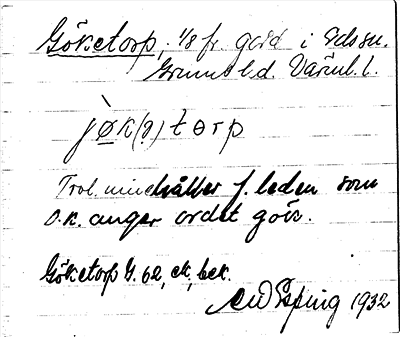 Göketorp, 1/8 fr. gård i Eds sn.
Grums hd. Värml. l.
jøk(ə)tɵrp
Trol. innehåller f. leden som
O.K. anger ordet gök.
Göketorp G. 62, ek, bek.
1932